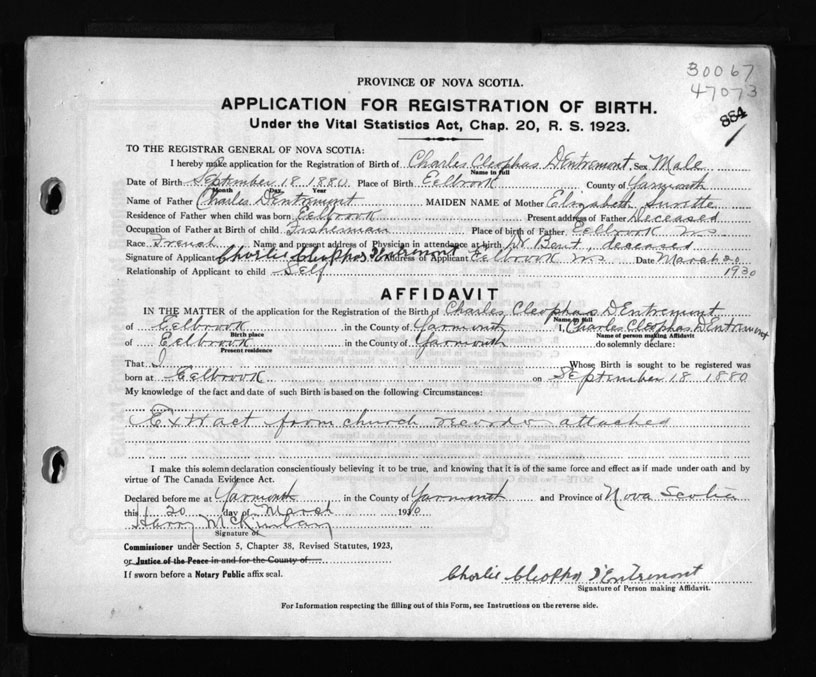 30067
47073
884
PROVINCE OF NOVA SCOTIA.
APPLICATION FOR REGISTRATION OF BIRTH.
Under the Vital Statistics Act, Chap. 20, R. S. 1923.
TO THE REGISTRAR GENERAL OF NOVA SCOTIA:
I hereby make application for the Registration of Birth of Charles Cleophas D'Entremont Sex Male
Name in full
Date of Birth September 18 1880 Place of Birth Eelbrook County of Yarmouth
Month Day Year
Name of Father Charles D'Entremont MAIDEN NAME of Mother Elizabeth Surette
Residence of Father when child was born Eelbrook Present address of Father Deceased
Occupation of Father at Birth of child Fisherman Place of birth of Father Eelbrook N.S
Race French Name and present address of Physician in attendance at birth Dr Bent, deceased
Signature of Applicant Charlie Cleophas D'Entremont Address of Applicant Eelbrook N.S Date March 20
Relationship of Applicant to child Self 1930
AFFIDAVIT
IN THE MATTER of the application for the Registration of the Birth of Charles Cleophas D'Entremont
Name in full
of Eelbrook in the County of Yarmouth I, Charles Cleophas D'Entremont
Birth place Name of person making Affidavit
of Eelbrook in the County of Yarmouth do solemnly declare:
Present residence
That I Whose Birth is sought to be registered was
born at Eelbrook on September 18 1880
My knowledge of the fact and date of such Birth is based on the following Circumstances:
Extract from church records attached
I make this solemn declaration conscientiously believing it to be true, and knowing that it is of the same force and effect as if made under oath and by
virtue of The Canada Evidence Act.
Declared before me at Yarmouth in the County of Yarmouth and Province of Nova Scotia
this 20 day of March 1930
Harry McKinlay
Signature of
Commissioner under Section 5, Chapter 38, Revised Statutes, 1923,
or Justice of the Peace in and for the County of
If sworn before a Notary Public affix seal.
Charlie Cleophas D'Entremont
Signature of Person making Affidavit.
For Information respecting the filling out of this Form, see Instructions on the reverse side.